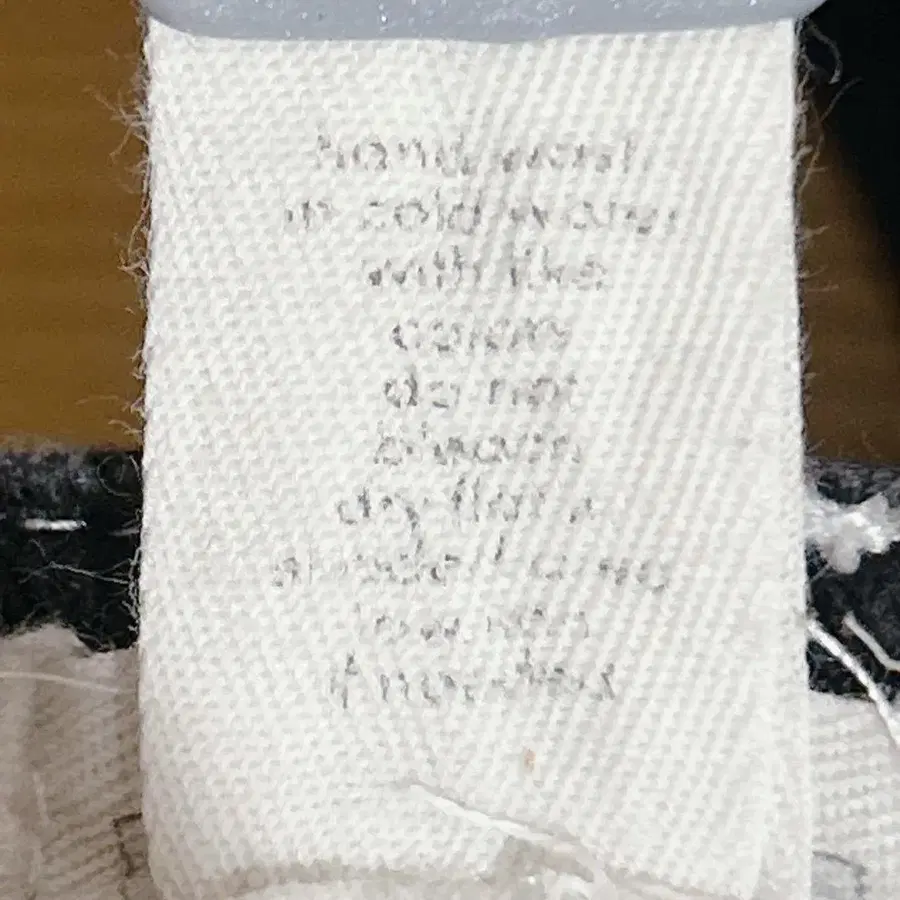 hand wash
in cold water
with like
colors
do not
bleach
dry flat
iron
if needed